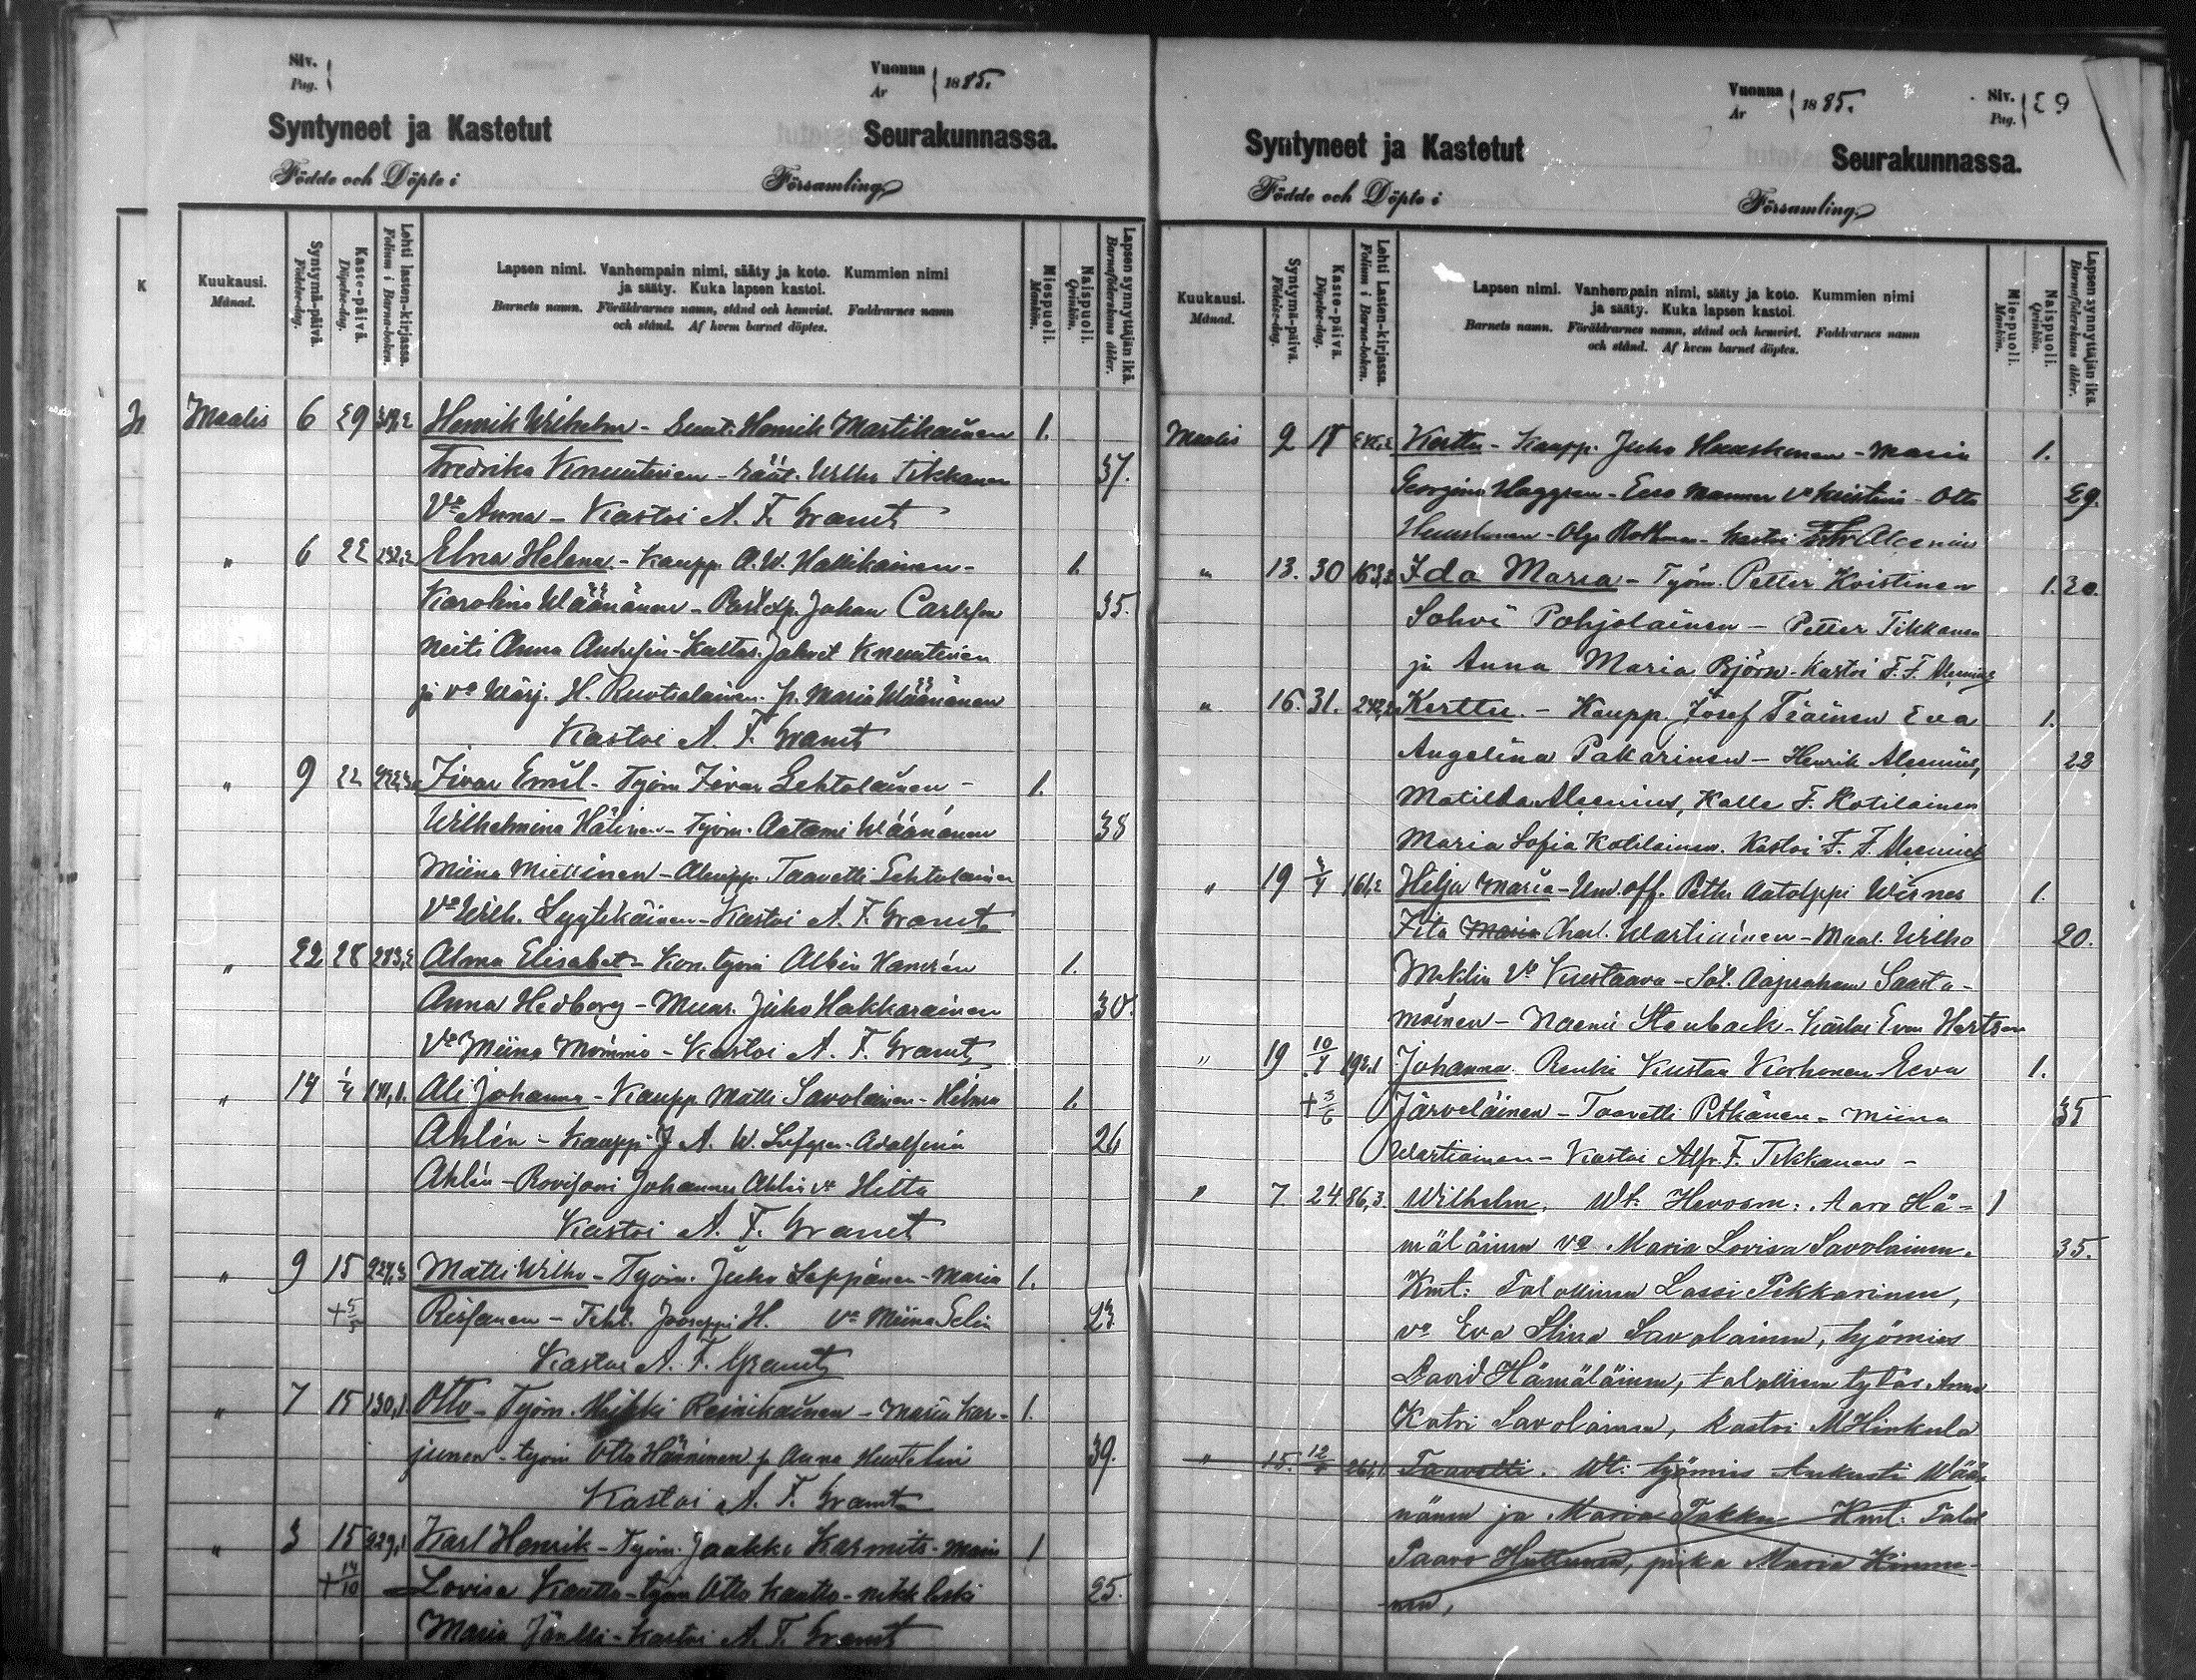 Siv.
Pag.
Vuonna
År
1885.
Syntyneet ja Kastetut
Seurakunnassa.
Födde och Döpte i
Församling
K
Kuukausi.
Månad.
Syntymä-päivä.
Födelse-dag.
Kaste-päivä.
Döpelse-dag.
Lehti lasten-kirjassa.
Folium i Barna-boken.
Lapsen nimi. Vanhempain nimi, sääty ja koto. Kummien nimi
ja sääty. Kuka lapsen kastoi.
Barnets namn. Föräldrarnes namn, stånd och hemvist. Faddrarnes namn
och stånd. Af hvem barnet döptes.
Miespuoli.
Mankön.
Naispuoli.
Qvinkön.
Lapsen synnyttäjän ikä.
Barnaföderskans ålder.
Maalis 6 29 Henrik Wilhelm - Henrik Martikainen 1.
Fredrika Knuutinen - räät. Wilho Tikkanen 37.
Vo Anna - Kastoi A. F. Granit
" 6 22 Elna Helena - Kaupp. A. W. Hallikainen - 1.
Karolina Wäänänen - Johan Carlsson 35.
neiti Anna - Knuutinen
ja vo H. Ruotsalainen ja Maria Wäänänen
Kastoi A. F. Granit
" 9 22 Iivar Emil - Työm. Iivar Lehtolainen - 1.
Wilhelmina - Työm. Aatami Wäänänen 38
Miina Miettinen - Taavetti Lehtolainen
Vo Wilh. Lyytikäinen - Kastoi A. F. Granit
" 22 28 283,2 Alma Elisabet - Albin 1.
Anna Hedborg - Muur. Juho Hakkarainen 30.
Vo Miina Mömmö - Kastoi A. F. Granit
" 14 1/4 Ali Johanna - Kaupp. Matti Savolainen - Hilma 1.
Ahlin - Kaupp. J A. W. - Adolfina 26
Ahlin - Johannes Ahlin vo Hilta
Kastoi A. F. Granit
" 9 15 Matti Wilho - Työm. Juho Leppänen - Maria 1.
+ 5/5 Reissanen - Jooseppi H. Vo Miina 23.
Kastoi A. F. Granit
" 7 15 130,1. Otto - Työm. Heikki Reinikainen - Maria Kar- 1.
junen - työm Otto Hänninen ja Anna 39.
Kastoi A. F. Granit
" 3 15 929,1 Karl Henrik - Työm. Jaakko - Maria 1
+ 14/10 Lovisa Kautto - työm Otto Kautto - leski 25.
Maria - Kastoi A. F. Granit
Vuonna
År
1885.
Siv.
Pag.
29
Syntyneet ja Kastetut
Seurakunnassa.
Födde och Döpte i
Församling
Kuukausi.
Månad.
Syntymä-päivä.
Födelse-dag.
Kaste-päivä.
Döpelse-dag.
Lehti Lasten-kirjassa.
Folium i Barna-boken.
Lapsen nimi. Vanhempain nimi, sääty ja koto. Kummien nimi
ja sääty. Kuka lapsen kastoi.
Barnets namn. Föräldrarnes namn, stånd och hemvist. Faddrarnes namn
och stånd. Af hvem barnet döptes.
Miespuoli.
Mankön.
Naispuoli.
Qvinkön.
Lapsen synnyttäjän ikä.
Barnaföderskans ålder.
Maalis 2 18 Kerttu - Kaupp. Juho Huuskonen - Maria 1.
Georgina Haggren - Eero Manner vo Kristiina - Otto 29.
Huuskonen - Olga - kastoi Alcenius
" 13. 30 163,2 Ida Maria - Työm. Petter Kvistinen 1. 20.
Sohvi Pohjolainen - Petter Tikkanen
ja Anna Maria Björn - Kastoi F. F. Alcenius
" 16. 31. 242,2 Kerttu. - Kaupp. Josef Tiainen Eva 1.
Angelina Pakarinen - Henrik Alcenius, 22
Matilda Alcenius, Kalle F. Kotilainen
Maria Sofia Kotilainen. Kastoi F. F. Alcenius
" 19 161,2 Hilja Maria - Und. off. Petter Aatolppi Wirnes 1.
Iita Maria Charl. Wartiainen - Maal. Wilho 20.
Meklin Vo Kustaava - Sot. Aapraham Saasta-
moinen - Naemi Stenback - Kastoi Evon Hertzen
" 19 10/4 192,1 Johanna. Renki Kustaa Korhonen Eeva 1.
+ 3/6 Järveläinen - Taavetti Pitkänen - Miina 35
Wartiainen - Kastoi Alfr. F. Tikkanen -
" 7. 24. 86,3. Wilhelm. Wt. Hevosm. Aaro Hä- 1
mäläinen vo Maria Lovisa Savolainen. 35.
Kmt: Talollinen Lassi Pekkarinen,
vo Eva Stina Savolainen, työmies
David Hämäläinen, talollisen tytär Anna
Katri Savolainen, kastoi M Hinkula
" 15. 12/4 261,1 Taavetti. Wt: työmies Aukusti Wää-
nänen ja Maria Takku Kmt. Talol
Paavo Huttunen, piika Maria Kinnu-
nen,